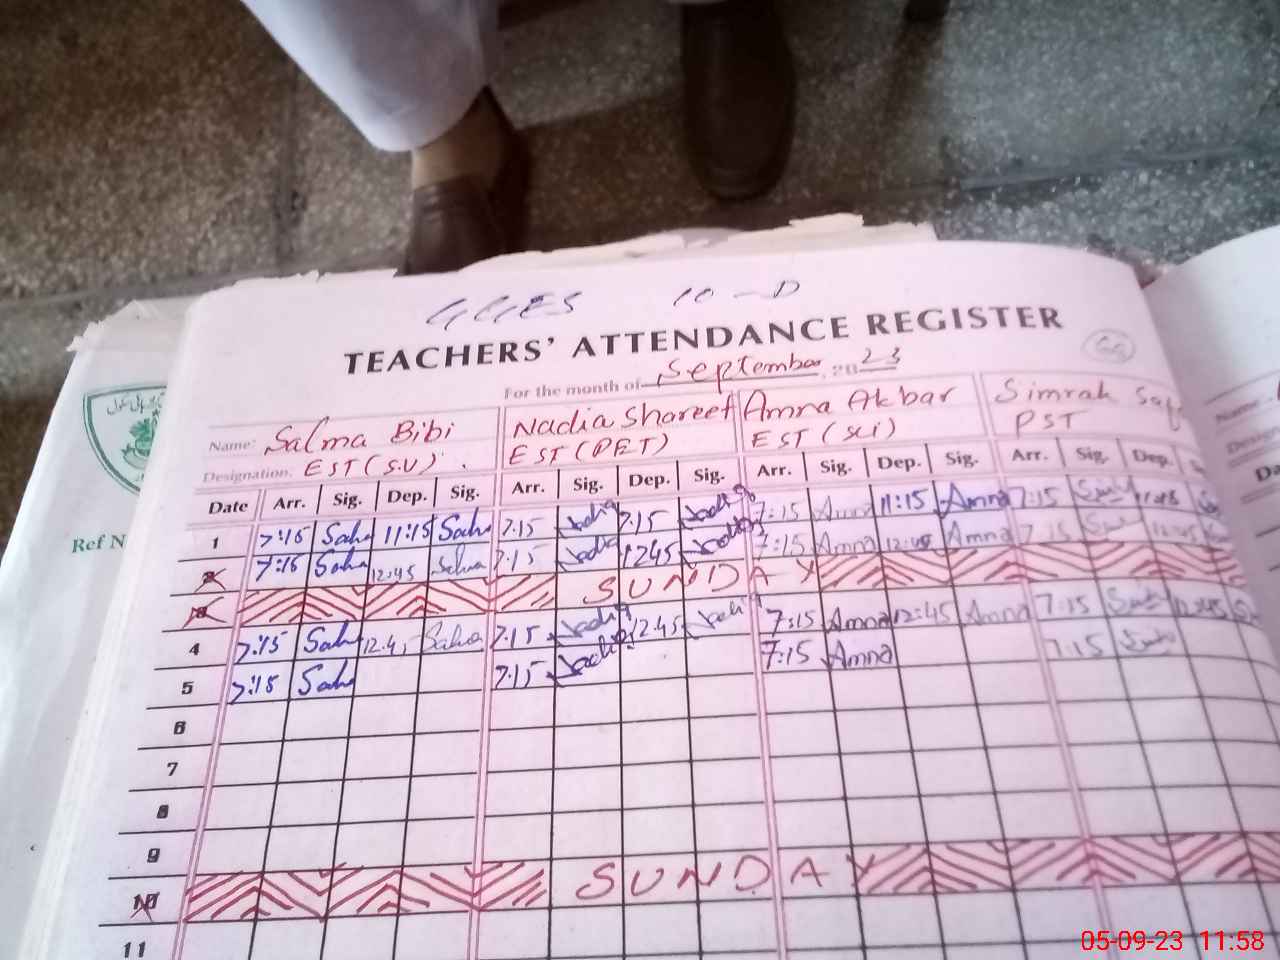 GGES 10-D
TEACHERS' ATTENDANCE REGISTER
For the month of September 2023
Name: Salma Bibi Nadia Shareef Amna Akbar Simrah
Designation. EST (S.V) EST (PET) EST (sci) PST
Date Arr. Sig. Dep. Sig. Arr. Sig. Dep. Sig. Arr. Sig. Dep. Sig. Arr. Sig. Dep.
1 7:15 Salma 11:15 Salma 7:15 Nadia 7:15 Nadia 7:15 Amna 11:15 Amna 7:15 11:15
2 7:15 Salma 12:45 Salma 7:15 Nadia 1245 Nadia 7:15 Amna 12:45 Amna 7:15 12:45
SUNDAY
4 7:15 Salma 12:45 Salma 7:15 Nadia 12:45 Nadia 7:15 Amna 12:45 Amna 7:15 12:45
5 7:15 Salma 7:15 Nadia 7:15 Amna 7:15
6
7
8
9
10 SUNDAY
11
Ref N
05-09-23 11:58